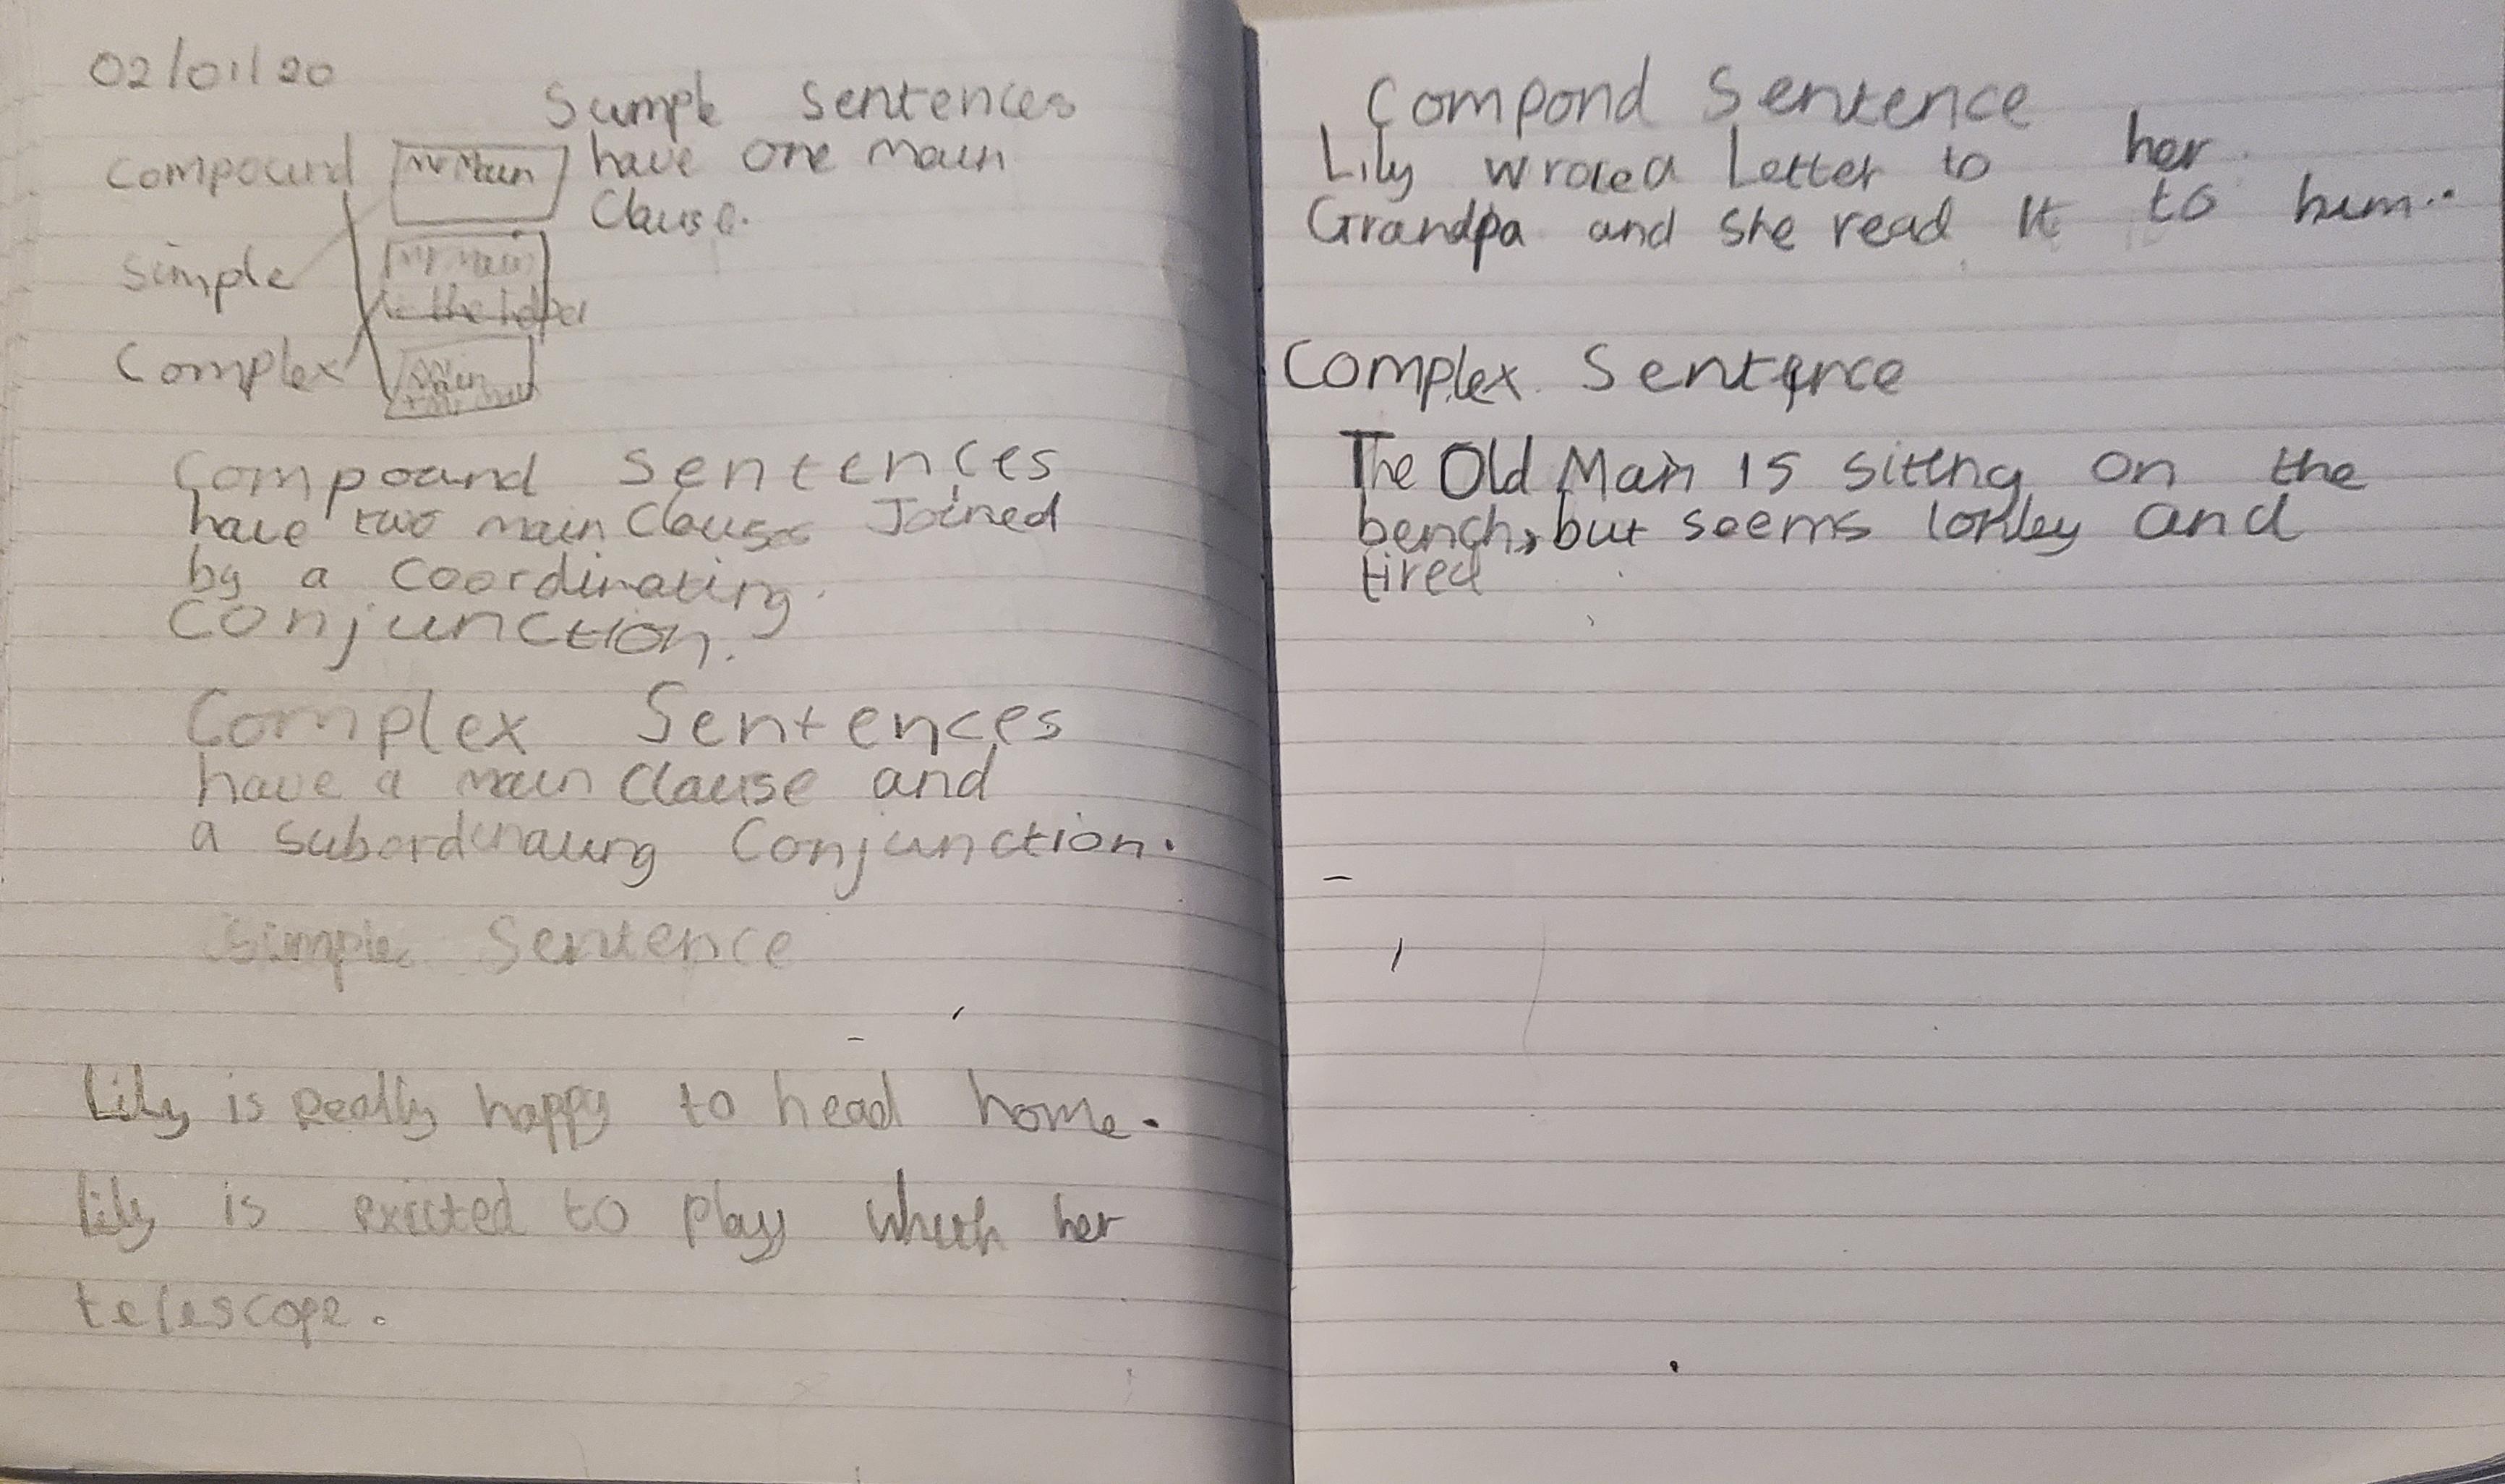 02/01/20
Simple Sentences
have one main
Clause.
Compound
Simple
Complex
Mr Main
Mr Main
the helper
Main
Compound Sentences
have two main Clauses Joined
by a Coordinating
Conjunction.
Complex Sentences
have a main Clause and
a subordinating Conjunction.
Simple Sentence
Lily is Really happy to head home.
Lily is exicted to play whith her
telescope.
Compond Sentence
Lily wrote a Letter to her
Grandpa and She read It to him..
Complex Sentence
The Old Man is siting on the
bench, but seems lonley and
tired